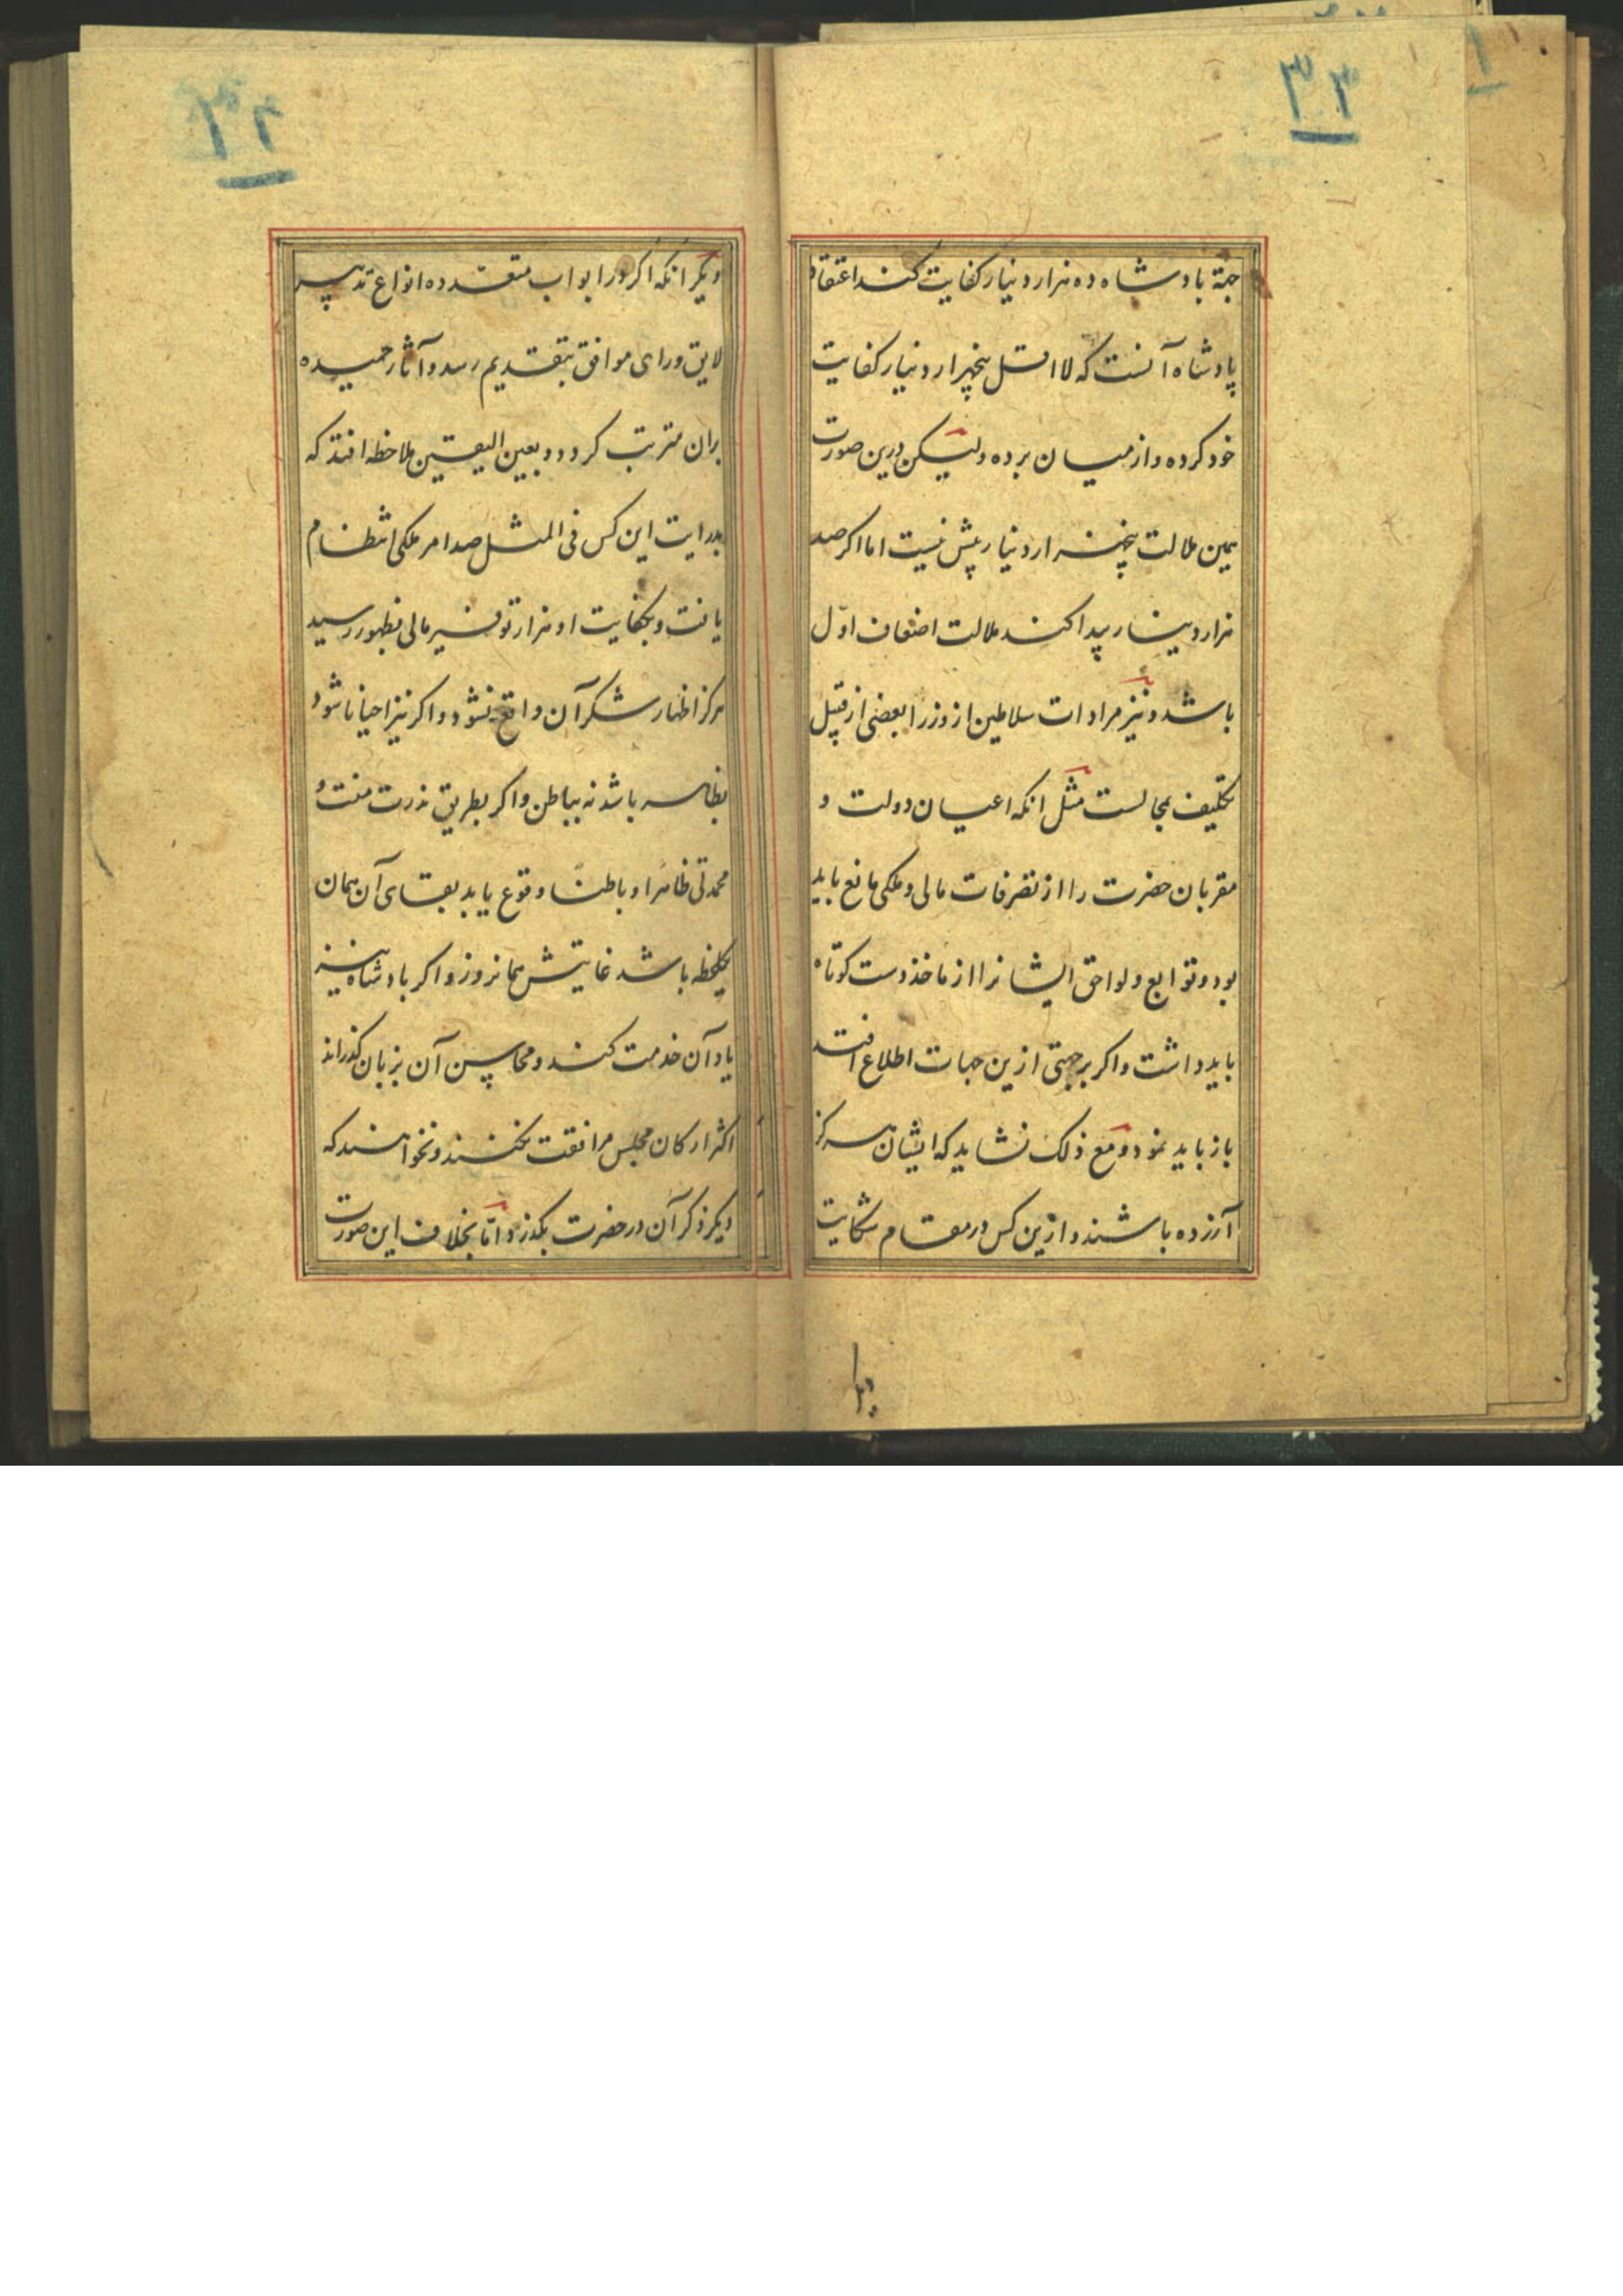 ۳۳
جهة بادشاه ده هزار دینار کفایت کند اعتقاد
پادشاه آنست که لااقل پنجهزار دینار کفایت
خود کرده و از میان برده ولیکن درین صورت
همین ملالت پنجهزار دینار بیش نیست اما اکر صد
هزار دینار پیدا کند ملالت اضعاف اول
باشد و نیز مرادات سلاطین از وزرا بعضی از قبیل
تکلیف بمحالست مثل انکه اعیان دولت و
مقربان حضرت را از تصرفات مالی و ملکی مانع باید
بود و توابع و لواحق ایشانرا از ماخذ دست کوتاه
باید داشت و اکر بر جهتی ازین جهات اطلاع افتد
باز باید نمود و مع ذلک نشاید که ایشان هرکز
آزرده باشند و ازین کس در مقام شکایت
۳۲
دیکر انکه اکر در ابواب متعدده انواع تدبیر
لایق و رای موافق بتقدیم رسد و آثار حمیده
بران مترتب کردد و بعین الیقین ملاحظه افتد که
بدرایت این کس فی المثل صد امر ملکی انتظام
یافت و بکفایت او هزار توفیر مالی بظهور رسید
هرکز اظهار شکر آن واقع نشود و اکر نیز احیانا شود
بظاهر باشد نه بباطن و اکر بطریق ندرت منت و
محمدتی ظاهرا و باطنا وقوع یابد بقای آن همان
یکلحظه باشد غایتش همانروز و اکر بادشاه نیز
یاد آن خدمت کند و محاسن آن بزبان کذراند
اکثر ارکان مجلس موافقت نکنند و نخواهند که
دیکر ذکر آن در حضرت بکذرد و اما بخلاف این صورت